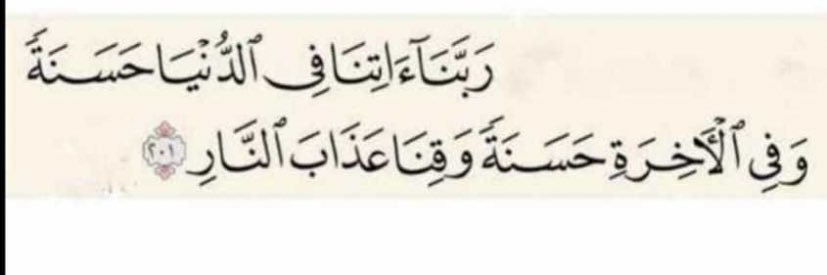 رَبَّنَآ ءَاتِنَا فِى ٱلدُّنْيَا حَسَنَةً
وَفِى ٱلْأَخِرَةِ حَسَنَةً وَقِنَا عَذَابَ ٱلنَّارِ ٢٠١